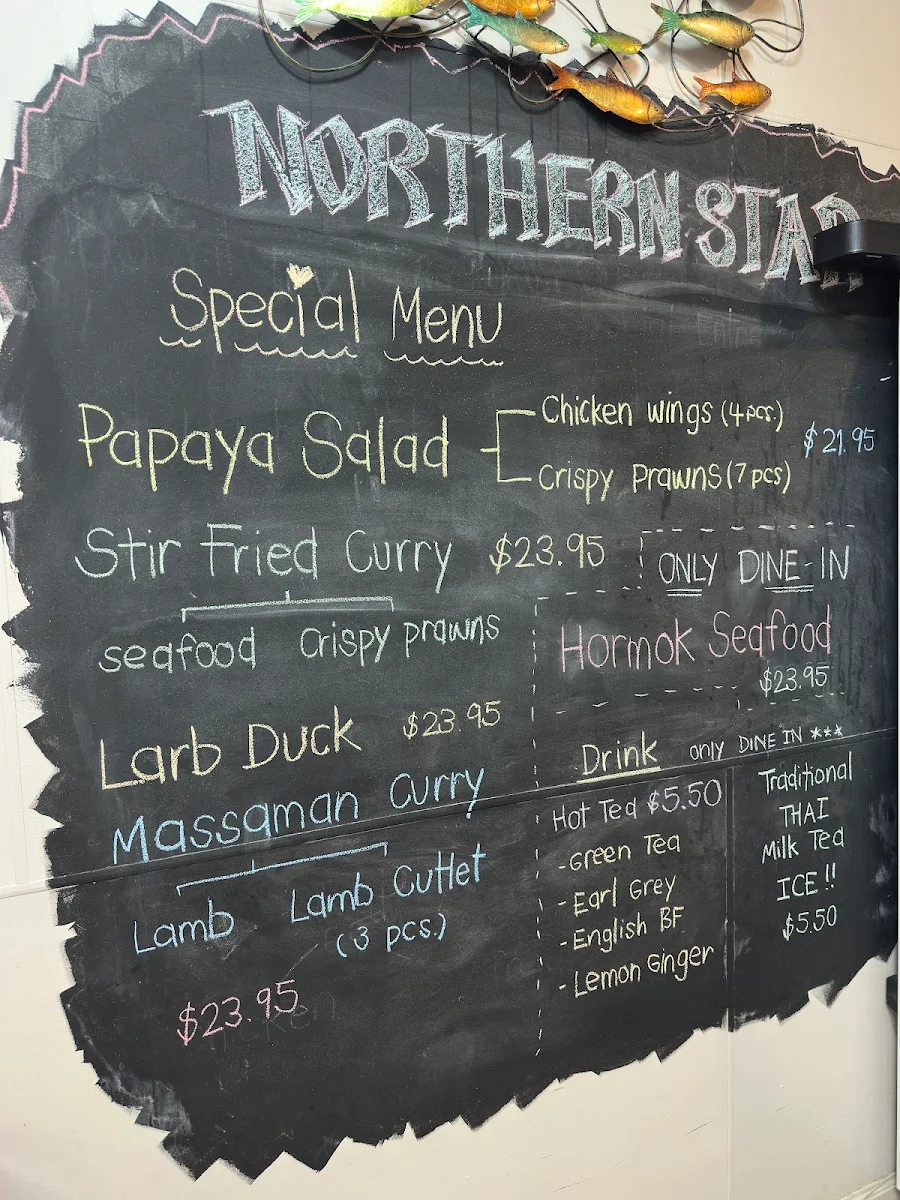 NORTHERN STAR
Special Menu
Papaya Salad
Chicken wings (4 pcs.)
Crispy Prawns (7 pcs)
$21.95
Stir Fried Curry $23.95
seafood Crispy prawns
ONLY DINE-IN
Hormok Seafood
$23.95
Larb Duck $23.95
Massaman Curry
Lamb Lamb Cuttlet
(3 pcs.)
$23.95
Drink only DINE IN ***
Hot Tea $5.50
-Green Tea
-Earl Grey
-English BF
-Lemon Ginger
Traditional
THAI
Milk Tea
ICE !!
$5.50